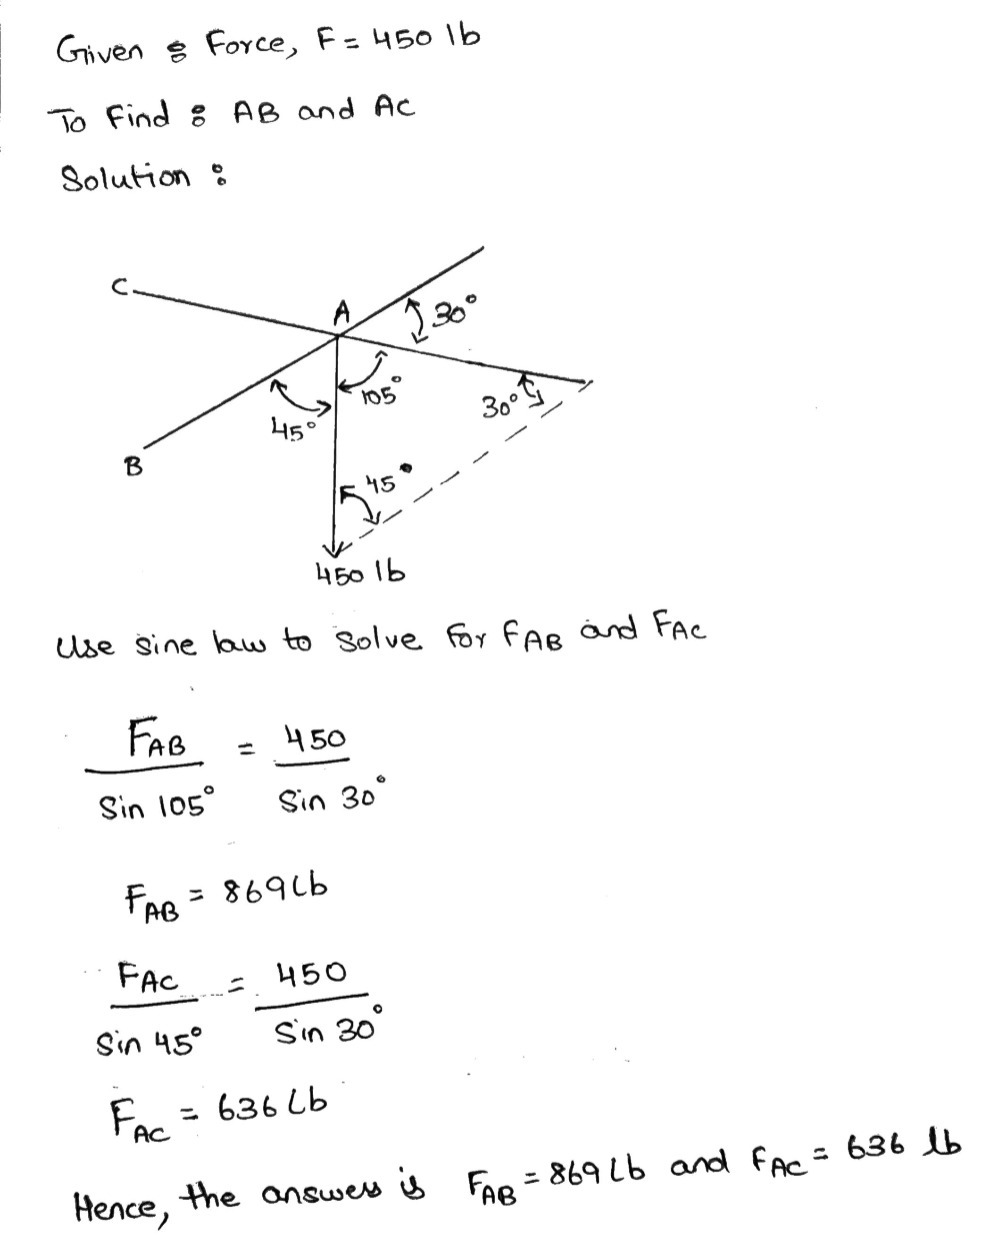 Given : Force, F = 450 lb
To Find : AB and AC
Solution :
C
A
30°
105°
30°
45°
B
45°
450 lb
Use Sine law to Solve For FAB and FAC
FAB / Sin 105° = 450 / Sin 30°
FAB = 869 Lb
FAC / Sin 45° = 450 / Sin 30°
FAC = 636 Lb
Hence, the answer is FAB = 869 Lb and FAC = 636 lb